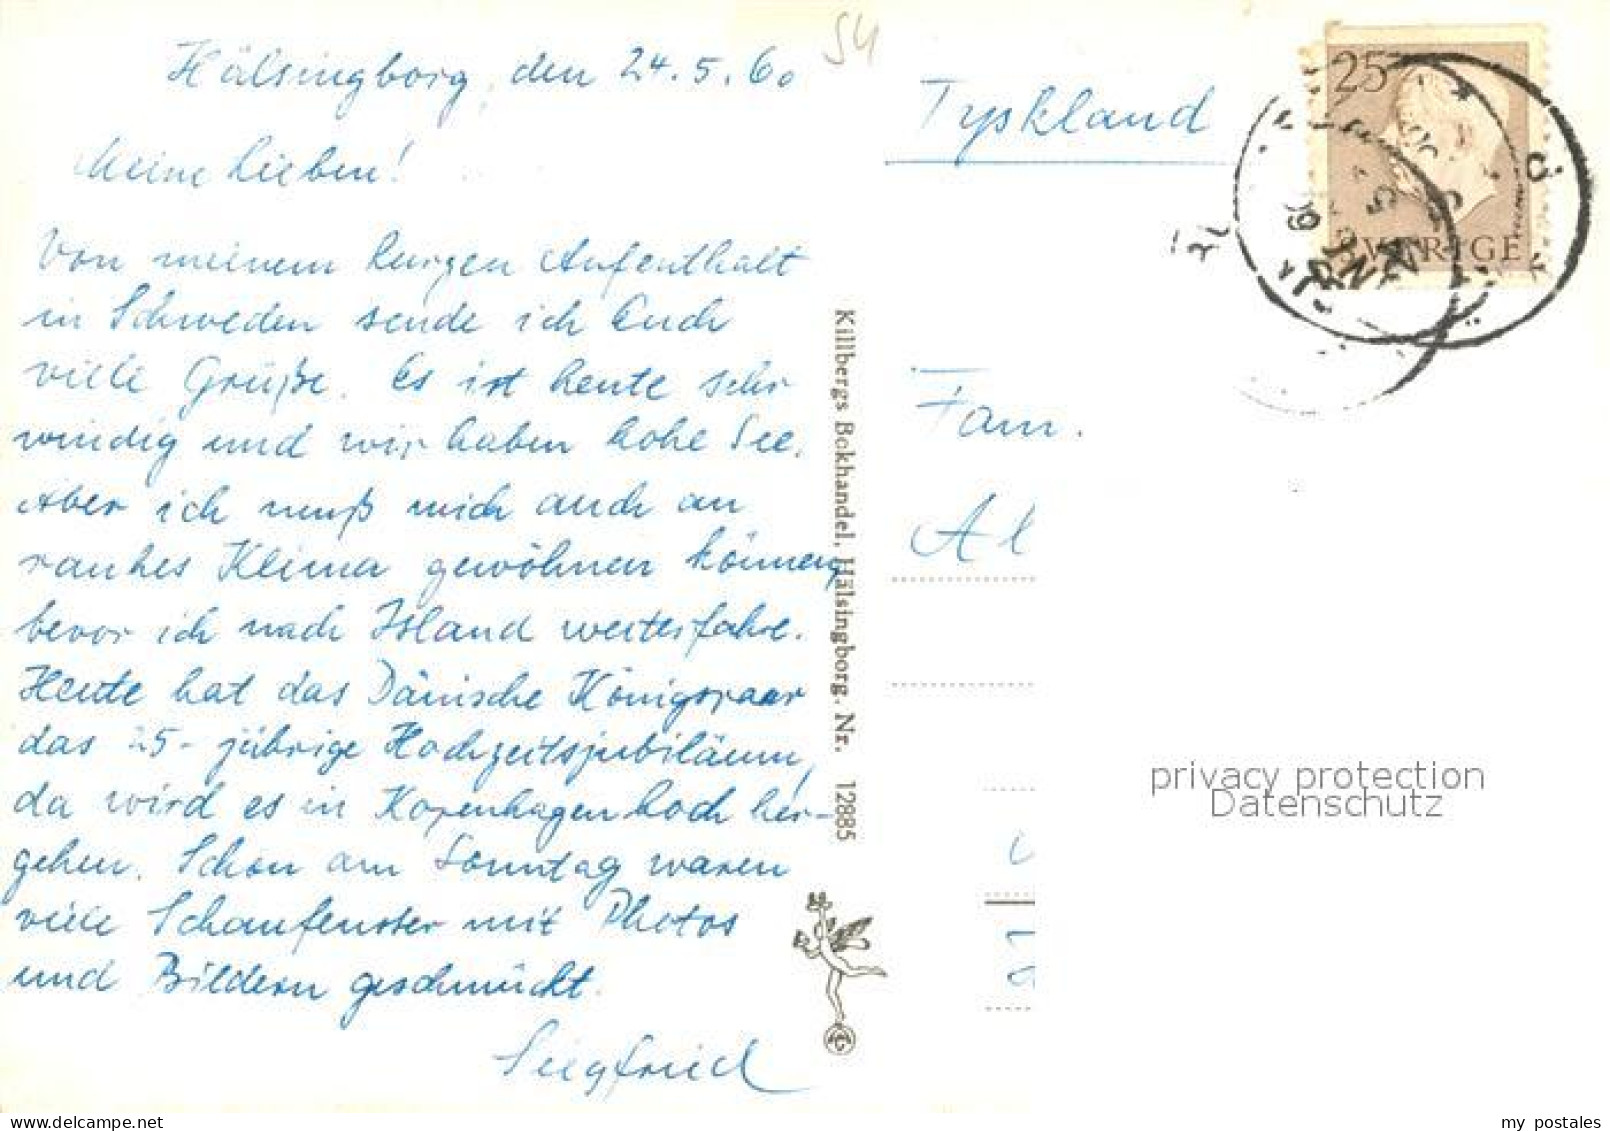 54
Hälsingborg, den 24.5.60
Meine Lieben!
Von meinem kurzen Aufenthalt
in Schweden sende ich Euch
viele Grüße. Es ist heute sehr
windig und wir haben hohe See.
Aber ich muß mich auch an
rauhes Klima gewöhnen können,
bevor ich nach Island weiterfahre.
Heute hat das Dänische Königspaar
das 25-jährige Hochzeitsjubiläum,
da wird es in Kopenhagen hoch her-
gehen. Schon am Sonntag waren
viele Schaufenster mit Photos
und Bildern geschmückt.
Siegfried
Killbergs Bokhandel, Hälsingborg. Nr. 12885
Tyskland
25
SVERIGE
Fam.
Al
privacy protection
Datenschutz
my postales